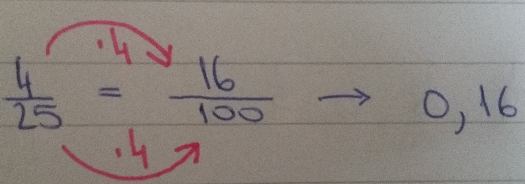 ·4
4/25 = 16/100 → 0,16
·4